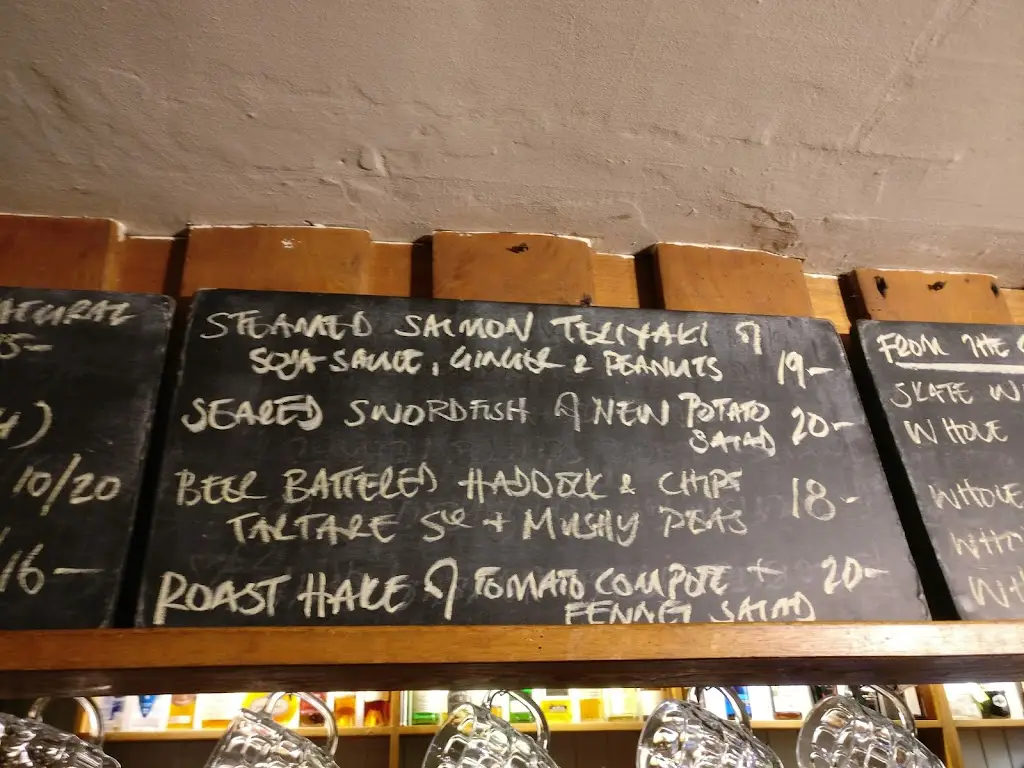 ATURAL
5-
4)
10/20
/16-
STEAMED SALMON TERIYAKI
SOYA SAUCE, GINGER & PEANUTS 19-
SEARED SWORDFISH NEW POTATO
SALAD 20-
BEER BATTERED HADDOCK & CHIPS 18-
TARTARE SCE + MUSHY PEAS
ROAST HAKE TOMATO COMPOTE + 20-
FENNEL SALAD
FROM THE
SKATE W
WHOLE
WHOLE
WHO
WH